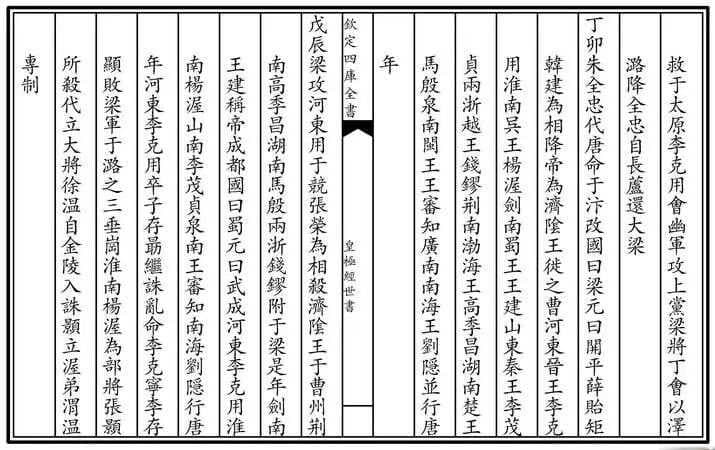 救于太原李克用會幽軍攻上黨梁將丁會以澤
潞降全忠自長蘆還大梁
丁卯朱全忠代唐命于汴改國曰梁元曰開平薛貽矩
韓建為相降帝為濟陰王徙之曹河東晉王李克
用淮南吳王楊渥劍南蜀王王建山東秦王李茂
貞兩浙越王錢鏐荆南渤海王高季昌湖南楚王
馬殷泉南閩王王審知廣南南海王劉隱並行唐
年
欽定四庫全書
皇極經世書
戊辰梁攻河東用于兢張榮為相殺濟陰王于曹州荆
南高季昌湖南馬殷兩浙錢鏐附于梁是年劍南
王建稱帝成都國曰蜀元曰武成河東李克用淮
南楊渥山南李茂貞泉南王審知南海劉隱行唐
年河東李克用卒子存勗繼誅亂命李克寧李存
顥敗梁軍于潞之三垂崗淮南楊渥為部將張顥
所殺代立大將徐温自金陵入誅顥立渥弟渭温
專制